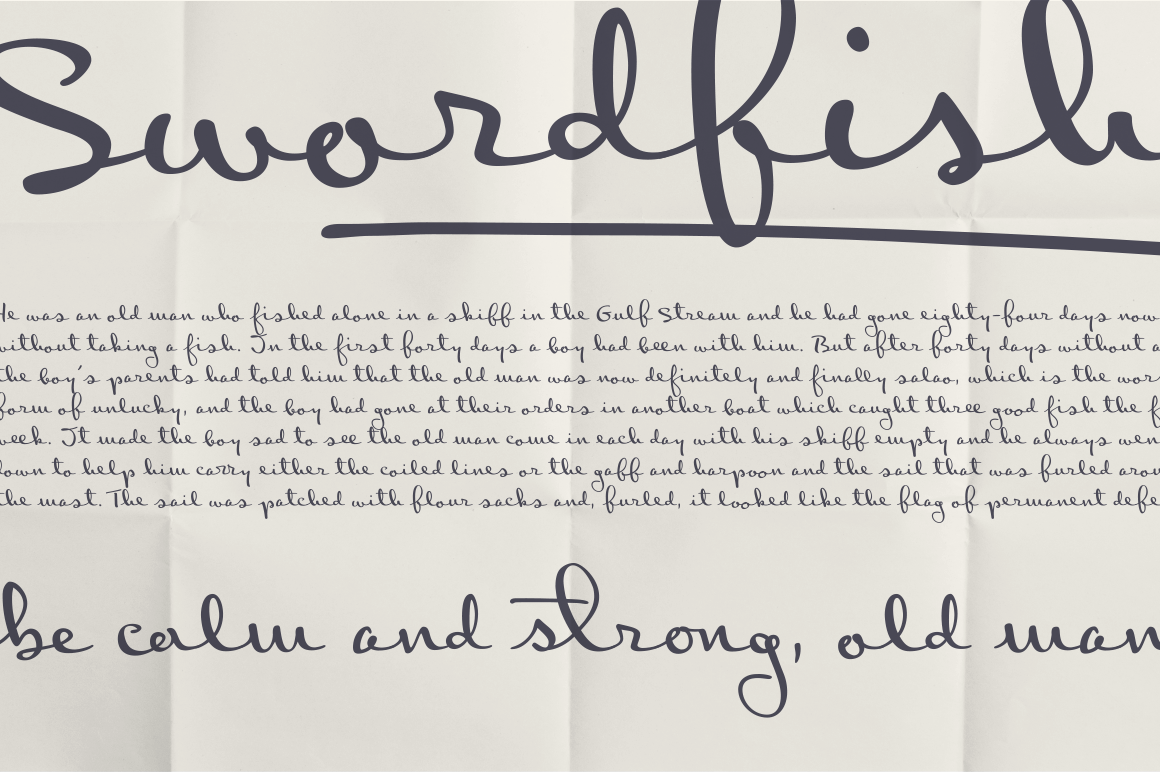 Swordfish
He was an old man who fished alone in a skiff in the Gulf Stream and he had gone eighty-four days now
without taking a fish. In the first forty days a boy had been with him. But after forty days without a
the boy's parents had told him that the old man was now definitely and finally salao, which is the wor
form of unlucky, and the boy had gone at their orders in another boat which caught three good fish the f
week. It made the boy sad to see the old man come in each day with his skiff empty and he always wen
down to help him carry either the coiled lines or the gaff and harpoon and the sail that was furled arou
the mast. The sail was patched with flour sacks and, furled, it looked like the flag of permanent defe
be calm and strong, old man